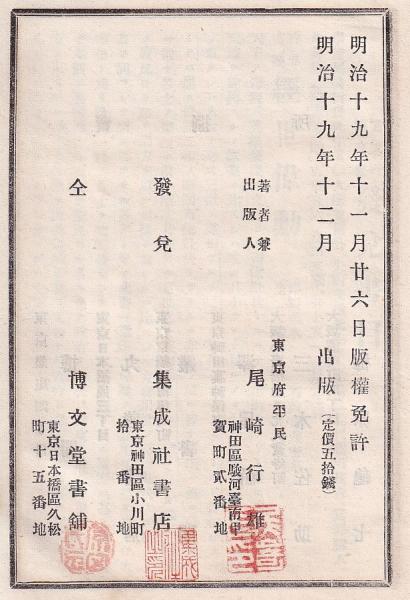 明治十九年十一月廿六日版權免許
明治十九年十二月 出版 (定價五拾錢)
東京府平民
著者兼
出版人
尾崎行雄
神田區駿河臺南甲
賀町貳番地
發兌
集成社書店
東京神田區小川町
拾番地
仝
博文堂書舖
東京日本橋區久松
町十五番地